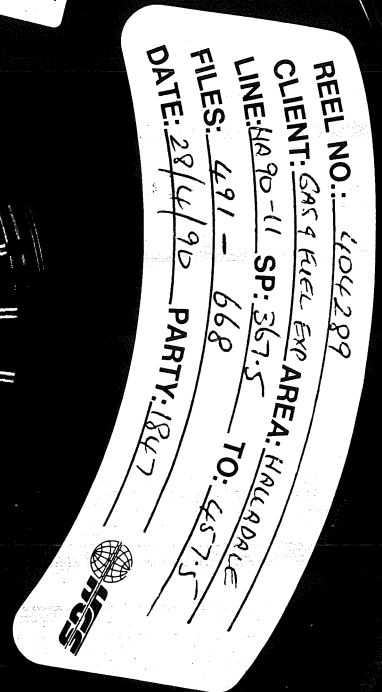 REEL NO.: 404289
CLIENT: GAS & FUEL EXP AREA: HALLADALE
LINE: HA90-11 SP: 367.5 TO: 457.5
FILES: 491 - 668
DATE: 28/4/90 PARTY: 1847
HGS